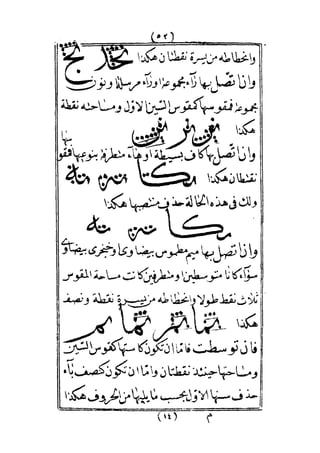 (٥٢)
وانحطاطه من يسرة نقطتان هكذا
وان اتصل بها راء مجموعة او راء مرسلة او نون
مجموعة فمقوسها كمقوس الشين الاول ومساحته نقطة
هكذا
وان اتصل بها كاف بسيطة او هاء متطرفة بنوعيها فمقوسها
نقطتان هكذا
ولك فى هذه الحالة حذف منتصبها هكذا
وان اتصل بها ميم مطموس بيضاوى او خنجرى بيضاوى
سواء كانا متوسطين او متطرفين كانت مساحة المقوس
ثلاث نقط طولا وانحطاطه من يسرة نقطة ونصف
هكذا
فان توسطت فاما ان تكون كاسنها كقوس الشين
ومساحتها حينئذ نقطتان واما ان تكون كنصف باء
حذف سنها الاول بحسب ما يليها من الحروف هكذا
م
(١٤)